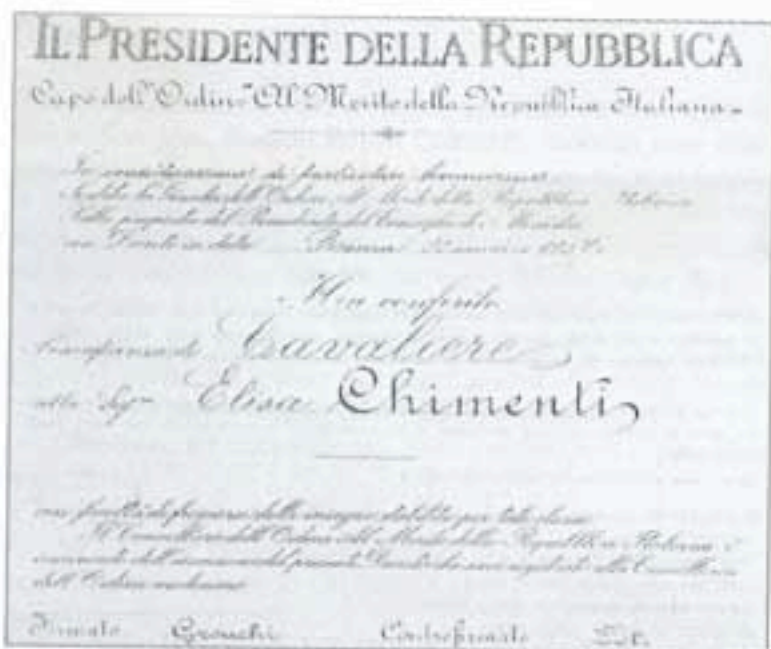 IL PRESIDENTE DELLA REPUBBLICA
Capo dell'Ordine "Al Merito della Repubblica Italiana"
In considerazione di particolari benemerenze
Sentita la Giunta dell'Ordine Al Merito della Repubblica Italiana
Sulla proposta del Presidente del Consiglio dei Ministri
con Decreto in data Roma
Ha conferito
l'onorificenza di Cavaliere
alla Sig.ra Elisa Chimenti
con facoltà di fregiarsi delle insegne stabilite per tale classe
Il Cancelliere dell'Ordine Al Merito della Repubblica Italiana è
incaricato dell'esecuzione del presente Decreto che sarà registrato alla Cancelleria
dell'Ordine medesimo
Firmato Gronchi Controfirmato